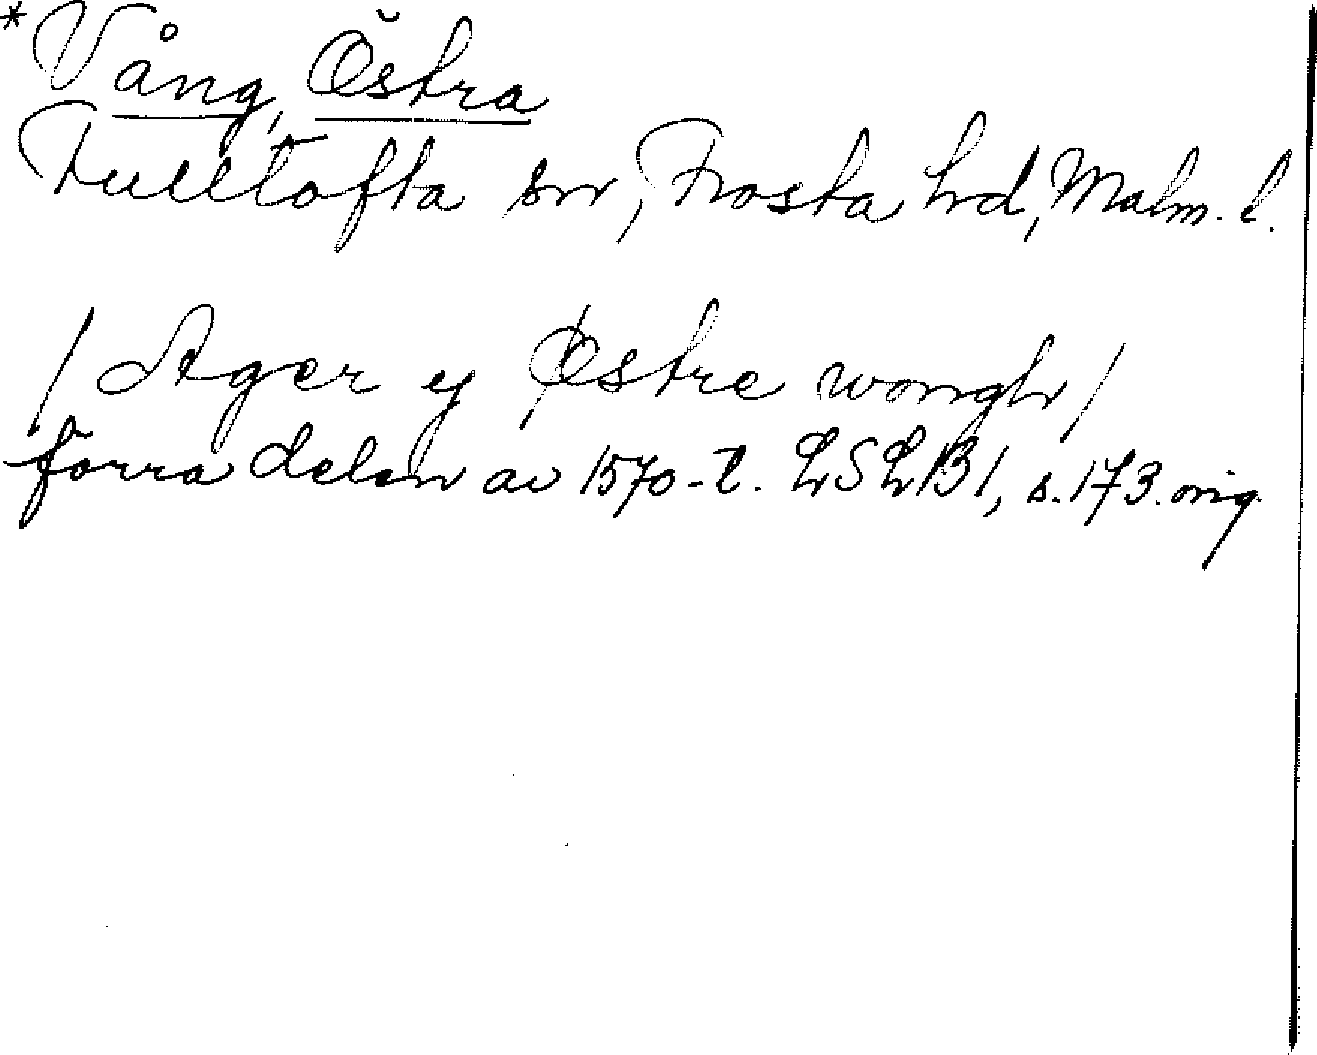 *Vång, Östra
Fulltofta sn, Frosta hd, Malm. l.
/Ager y Østre wongh/
förra delen av 1570-t. LSLB 1, s. 173. orig.